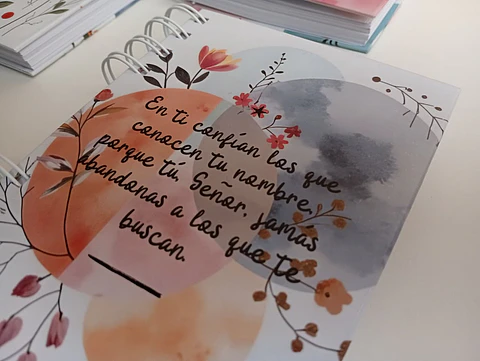 En ti confían los que
conocen tu nombre,
porque tú, Señor, jamás
abandonas a los que te
buscan.